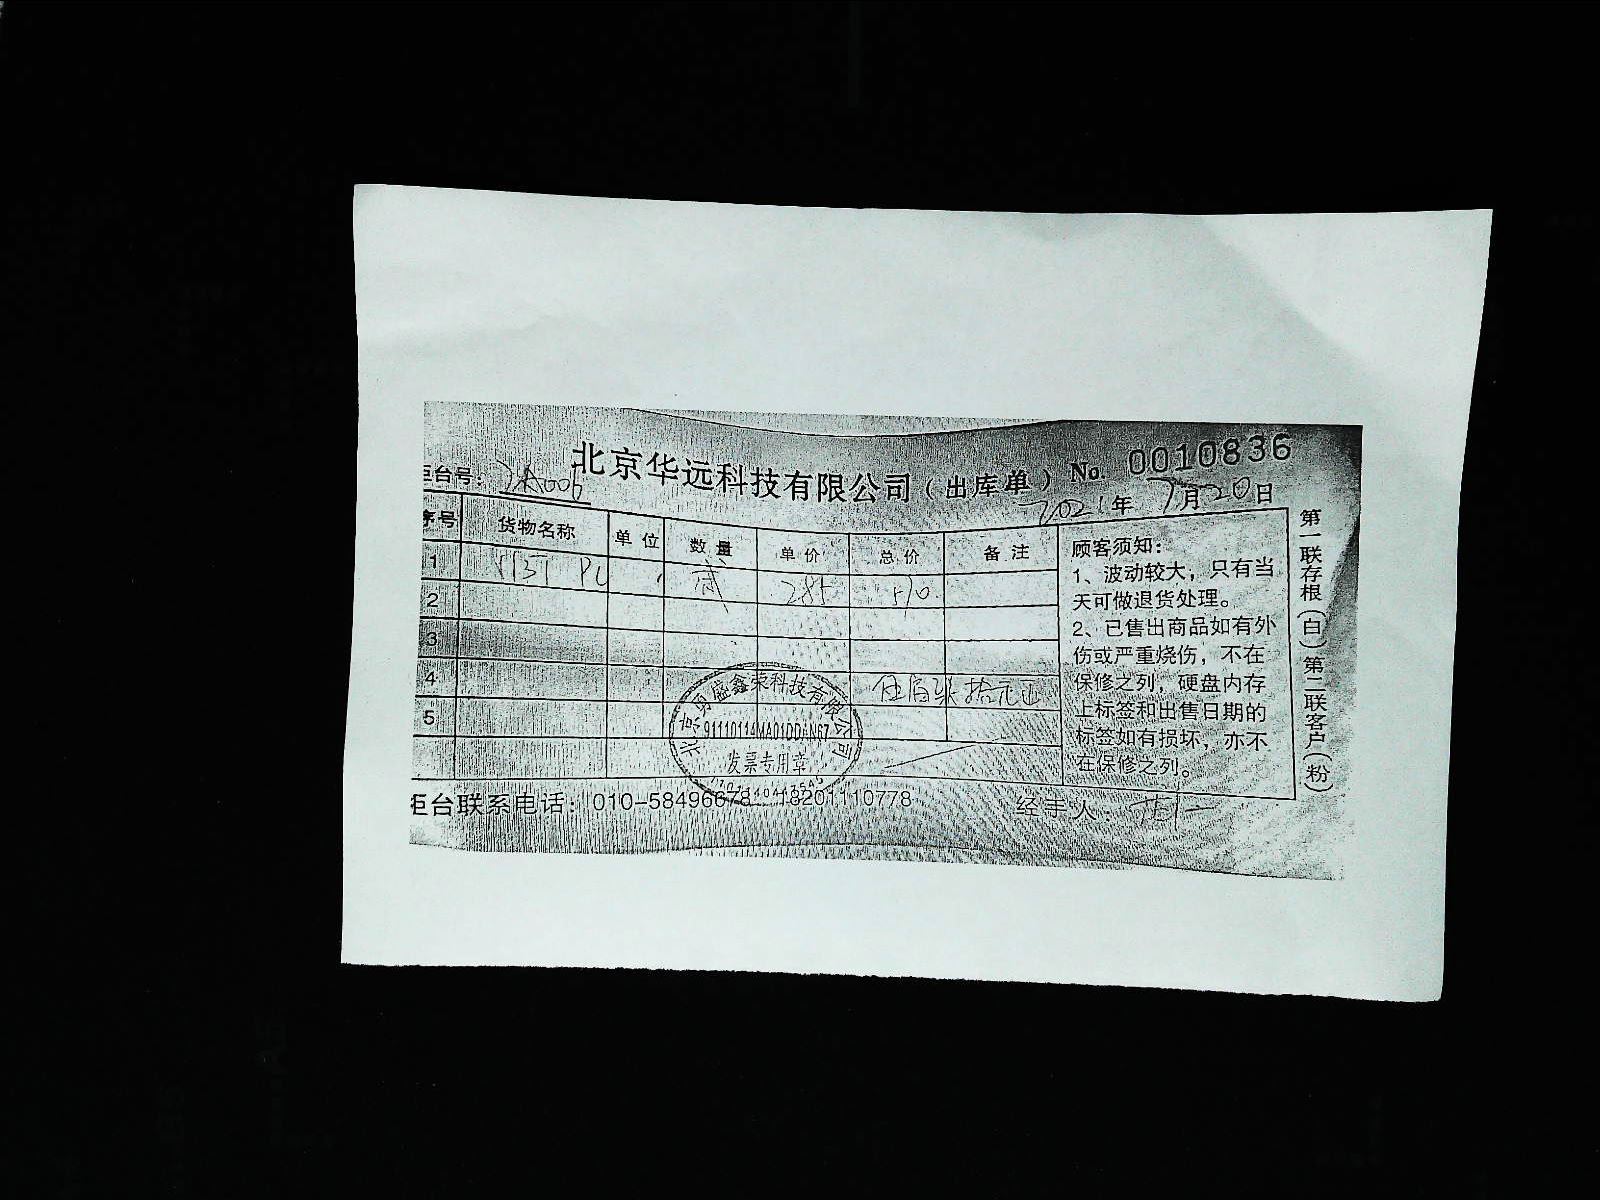 北京华远科技有限公司（出库单）No. 0010836
柜台号：
2021年 7月20日
序号 货物名称 单位 数量 单价 总价 备注
1 贰 285 510
2
3
4
5
伍佰 拾元正
顾客须知：
1、波动较大，只有当
天可做退货处理。
2、已售出商品如有外
伤或严重烧伤，不在
保修之列，硬盘内存
上标签和出售日期的
标签如有损坏，亦不
在保修之列。
第一联存根（白）第二联客户（粉）
盛鑫荣科技有限公司
91110114MA01DDAN67
发票专用章
柜台联系电话：010-58496678 18201110778 经手人：